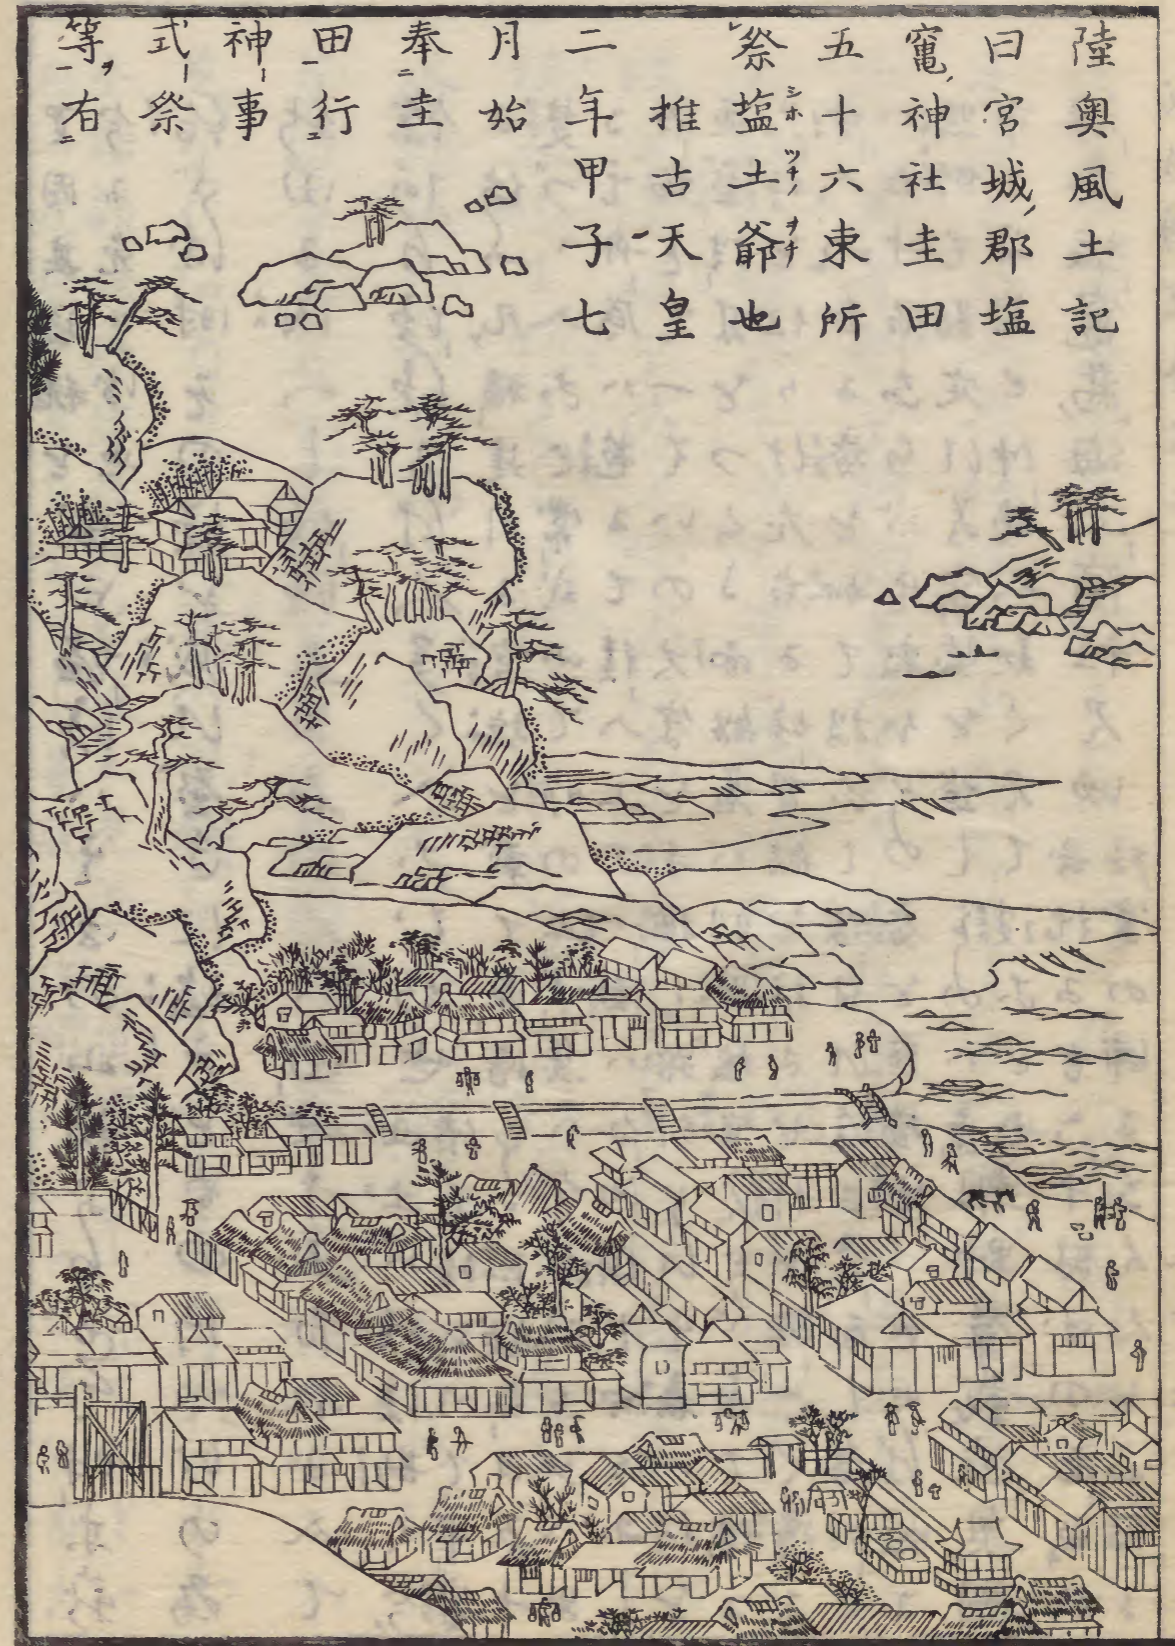 陸奥風土記
曰宮城郡塩
竃神社圭田
五十六束所
祭塩土爺也
推古天皇
二年甲子七
月始
奉圭
田行
神事
式祭
等有